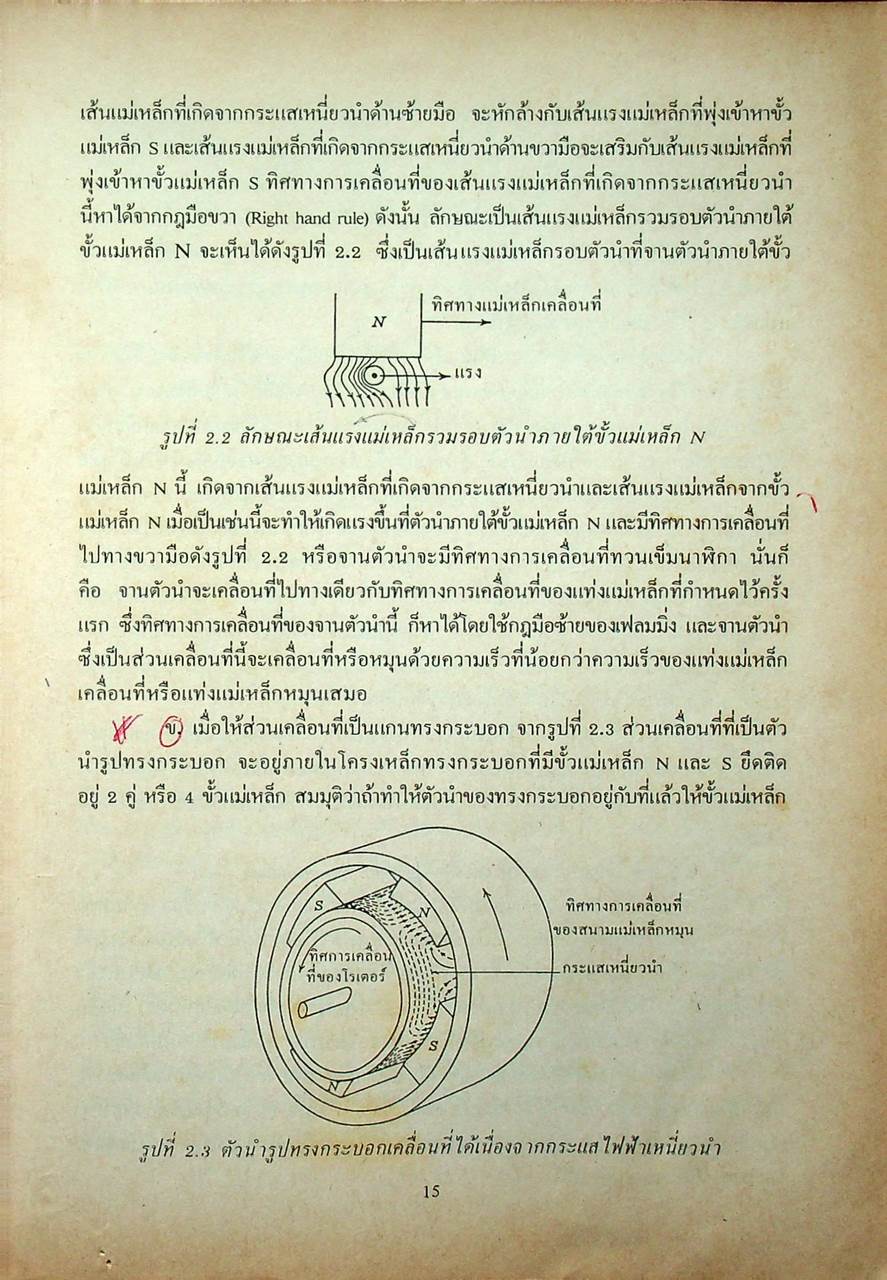 เส้นแม่เหล็กที่เกิดจากกระแสเหนี่ยวนำด้านซ้ายมือ จะหักล้างกับเส้นแรงแม่เหล็กที่พุ่งเข้าหาขั้ว
แม่เหล็ก S และเส้นแรงแม่เหล็กที่เกิดจากกระแสเหนี่ยวนำด้านขวามือจะเสริมกับเส้นแรงแม่เหล็กที่
พุ่งเข้าหาขั้วแม่เหล็ก S ทิศทางการเคลื่อนที่ของเส้นแรงแม่เหล็กที่เกิดจากกระแสเหนี่ยวนำ
นี้หาได้จากกฎมือขวา (Right hand rule) ดังนั้น ลักษณะเป็นเส้นแรงแม่เหล็กรวมรอบตัวนำภายใต้
ขั้วแม่เหล็ก N จะเห็นได้ดังรูปที่ 2.2 ซึ่งเป็นเส้นแรงแม่เหล็กรอบตัวนำที่จานตัวนำภายใต้ขั้ว
ทิศทางแม่เหล็กเคลื่อนที่
N
แรง
รูปที่ 2.2 ลักษณะเส้นแรงแม่เหล็กรวมรอบตัวนำภายใต้ขั้วแม่เหล็ก N
แม่เหล็ก N นี้ เกิดจากเส้นแรงแม่เหล็กที่เกิดจากกระแสเหนี่ยวนำและเส้นแรงแม่เหล็กจากขั้ว
แม่เหล็ก N เมื่อเป็นเช่นนี้จะทำให้เกิดแรงขึ้นที่ตัวนำภายใต้ขั้วแม่เหล็ก N และมีทิศทางการเคลื่อนที่
ไปทางขวามือดังรูปที่ 2.2 หรือจานตัวนำจะมีทิศทางการเคลื่อนที่ทวนเข็มนาฬิกา นั่นก็
คือ จานตัวนำจะเคลื่อนที่ไปทางเดียวกับทิศทางการเคลื่อนที่ของแท่งแม่เหล็กที่กำหนดไว้ครั้ง
แรก ซึ่งทิศทางการเคลื่อนที่ของจานตัวนำนี้ ก็หาได้โดยใช้กฎมือซ้ายของเฟลมมิ่ง และจานตัวนำ
ซึ่งเป็นส่วนเคลื่อนที่นี้จะเคลื่อนที่หรือหมุนด้วยความเร็วที่น้อยกว่าความเร็วของแท่งแม่เหล็ก
เคลื่อนที่หรือแท่งแม่เหล็กหมุนเสมอ
ข. เมื่อให้ส่วนเคลื่อนที่เป็นแกนทรงกระบอก จากรูปที่ 2.3 ส่วนเคลื่อนที่ที่เป็นตัว
นำรูปทรงกระบอก จะอยู่ภายในโครงเหล็กทรงกระบอกที่มีขั้วแม่เหล็ก N และ S ยึดติด
อยู่ 2 คู่ หรือ 4 ขั้วแม่เหล็ก สมมุติว่าถ้าทำให้ตัวนำของทรงกระบอกอยู่กับที่แล้วให้ขั้วแม่เหล็ก
S
N
ทิศทางการเคลื่อนที่
ของสนามแม่เหล็กหมุน
ทิศการเคลื่อน
ที่ของโรเตอร์
กระแสเหนี่ยวนำ
S
N
รูปที่ 2.3 ตัวนำรูปทรงกระบอกเคลื่อนที่ได้เนื่องจากกระแสไฟฟ้าเหนี่ยวนำ
15